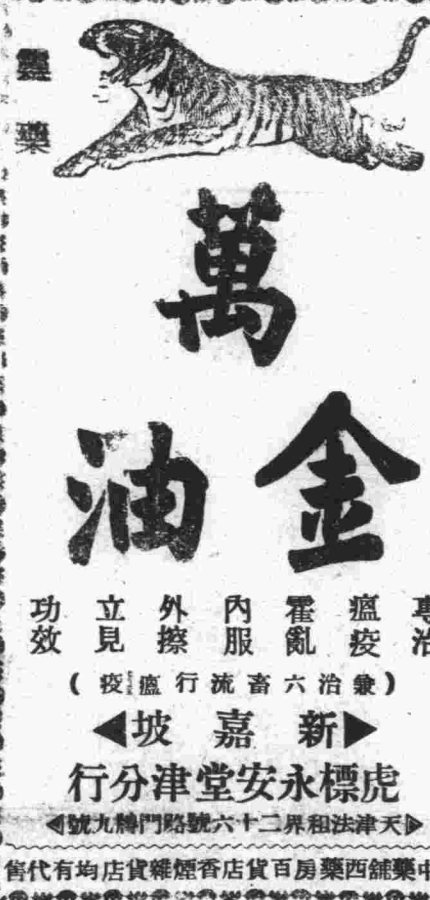 靈藥
萬
金油
專治
瘟疫
霍亂
內服
外擦
立見
功效
(兼治六畜流行瘟疫)
新嘉坡
虎標永安堂津分行
天津法租界二十六號路門牌九號
中藥舖西藥房百貨店香煙雜貨店均有代售